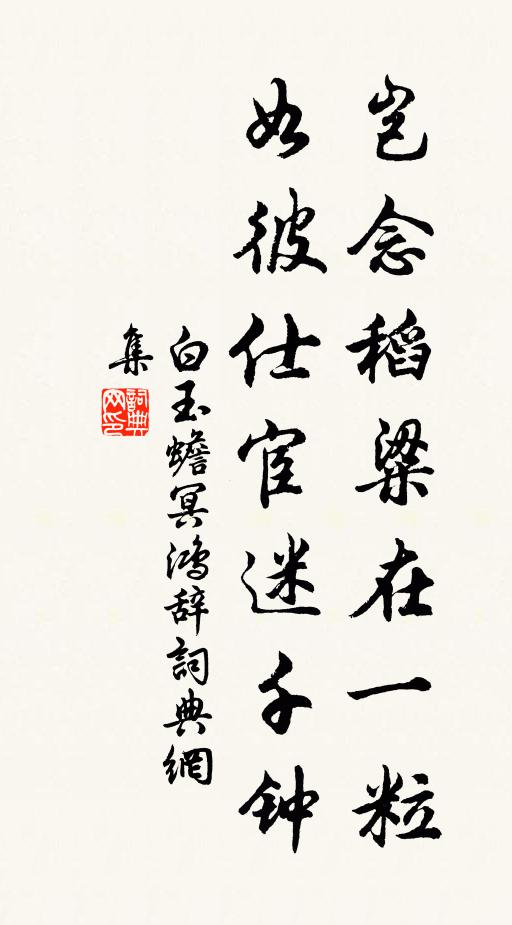 岂念稻粱在一粒
如彼仕宦迷千钟
白玉蟾冥鸿辞詞典網
集
詞典
网印